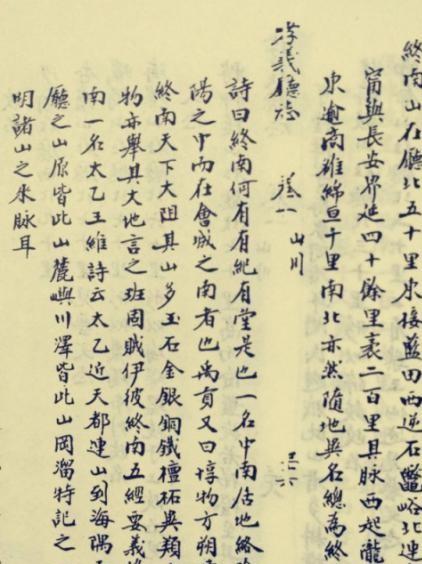 終南山在廳北五十里東接藍田西逆石鱉峪北連
甯與長安界延四十餘里袤二百里其脉西起隴
東逾商雒綿亘千里南北亦然隨地異名總為終
孝義廳志 卷一 山川
詩曰終南何有有紀有堂是也一名中南居地絡
陽之中而在會城之南者也禹貢又曰惇物方朔
終南天下大阻其山多玉石金銀銅鐵檀柘異類
物亦舉其大地言之班固賦伊彼終南五經要義
南一名太乙王維詩云太乙近天都連山到海隅
廳之山原皆此山麓嶼川澤皆此山岡溜特記之
明諸山之來脉耳